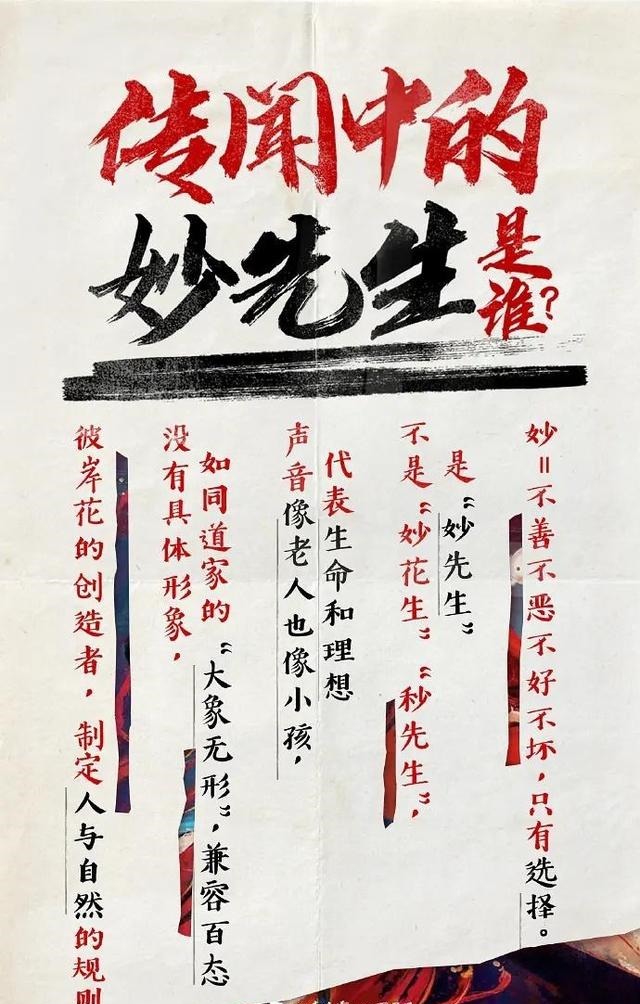 传闻中的
妙先生
是谁?
彼岸花的创造者，制定人与自然的规则
没有具体形象，
如同道家的“大象无形”，兼容百态
声音像老人也像小孩，
代表生命和理想
不是“妙花生”“秒先生”，
是“妙先生”
妙=不善不恶不好不坏，只有选择。